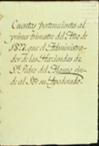 Cuentas pertenecientes al
primer trimestre del Año de
1877, que el Administra-
dor de las Haciendas de
Sn. Pedro del Alamo rin-
de al Sr. su Apoderado